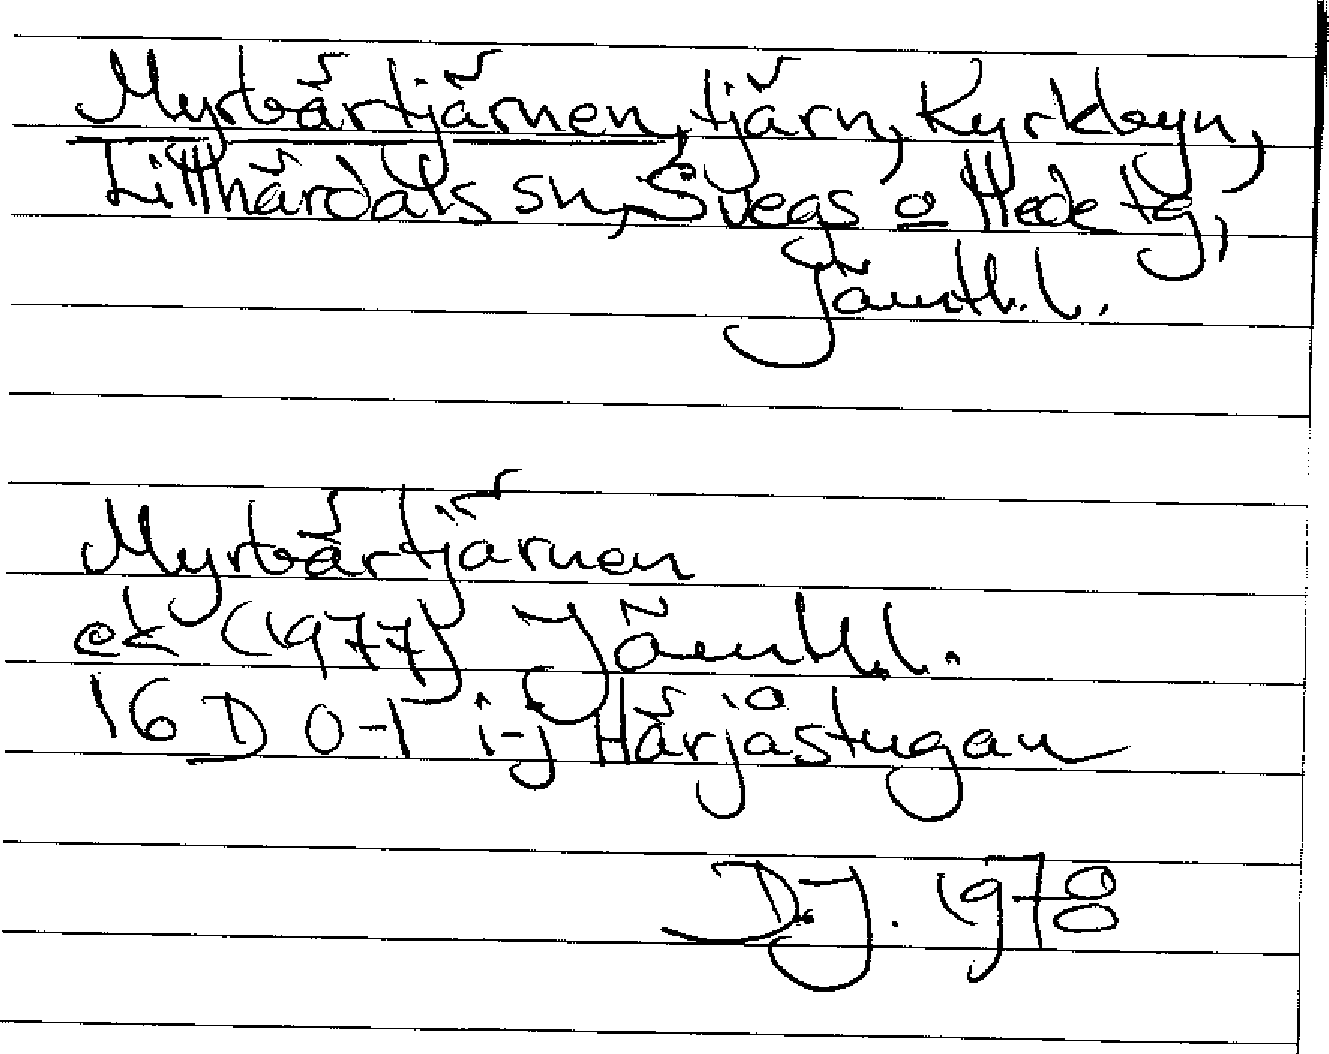 Myrbärtjärnen, tjärn, Kyrkbyn,
Lillhärdals sn, Svegs o Hede tg,
Jämtl. l.
Myrbärtjärnen
ek (1977) Jämtl. l.
16 D 0-1 i-j Härjåstugan
D.J. 1978